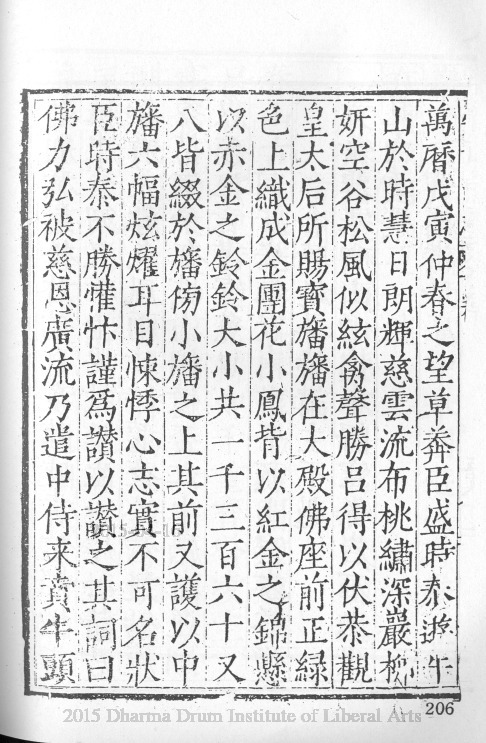 萬曆戊寅仲春之望草莽臣盛時泰遊牛
山於時慧日朗輝慈雲流布桃繡深巖柳
妍空谷松風似絃禽聲勝呂得以伏恭觀
皇太后所賜寶旛旛在大殿佛座前正綠
色上織成金團花小鳳皆以紅金之錦懸
以赤金之鈴鈴大小共一千三百六十又
八皆綴於旛傍小旛之上其前又護以中
旛六幅炫燿耳目悚悸心志實不可名狀
臣時泰不勝懽忭謹爲讚以讚之其詞曰
佛力弘被慈恩廣流乃遣中侍来賁牛頭
206
2015 Dharma Drum Institute of Liberal Arts